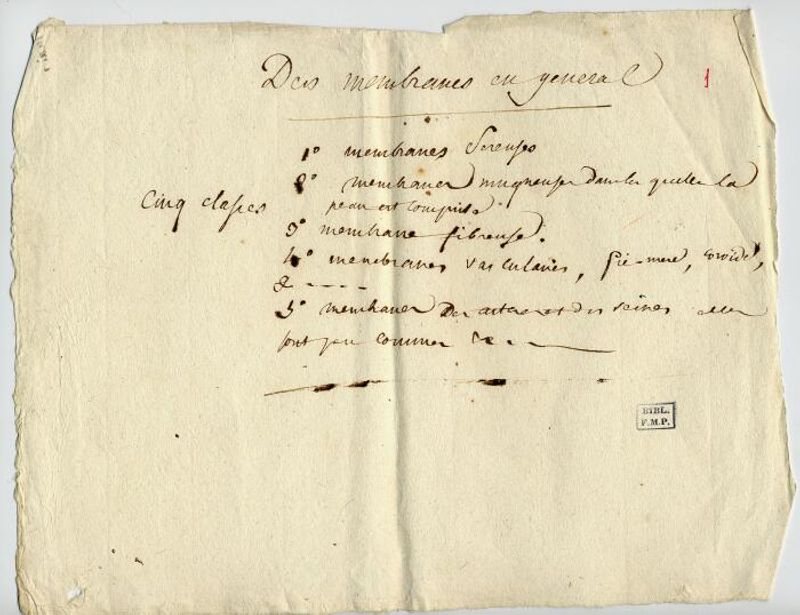 Des membranes en general
1
1° membranes sereuses
2° membranes muqueuses dans les quelles la
Cinq classes
peau est comprise
3° membrane fibreuse.
4° membranes vasculaires, pie-mere, coroïde,
& - - - -
5° membranes des arteres et des veines elles
sont peu connues &c - - -
BIBL.
F.M.P.